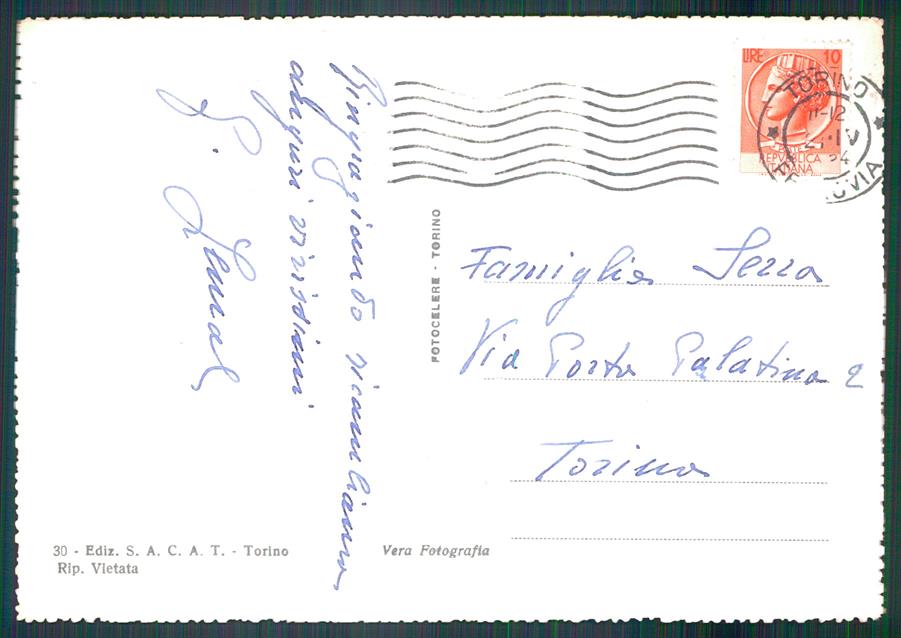 Ringraziando ricambiamo
auguri vivissimi
LIRE 10
REPVBBLICA
ITALIANA
TORINO
11-12
54
FERROVIA
FOTOCELERE - TORINO
Famiglia Serra
Via Porta Palatina 2
Torino
30 - Ediz. S. A. C. A. T. - Torino
Rip. Vietata
Vera Fotografia